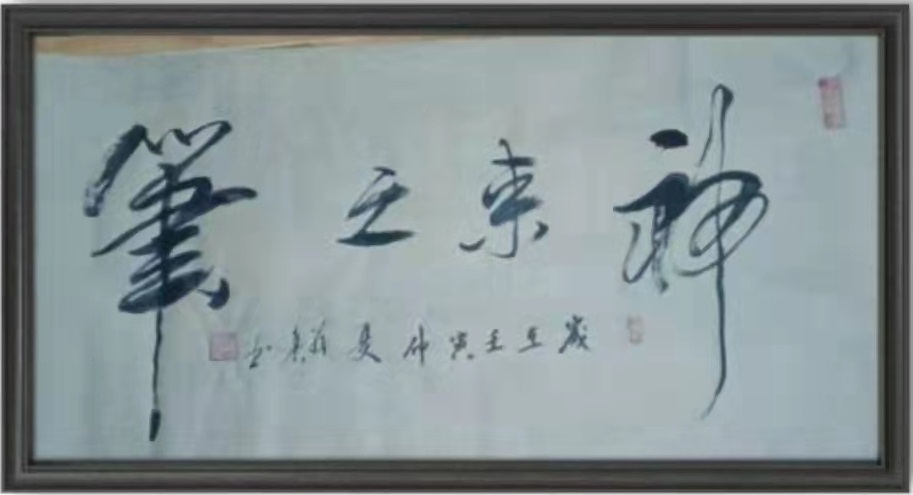 神来之筆
岁在壬寅仲夏